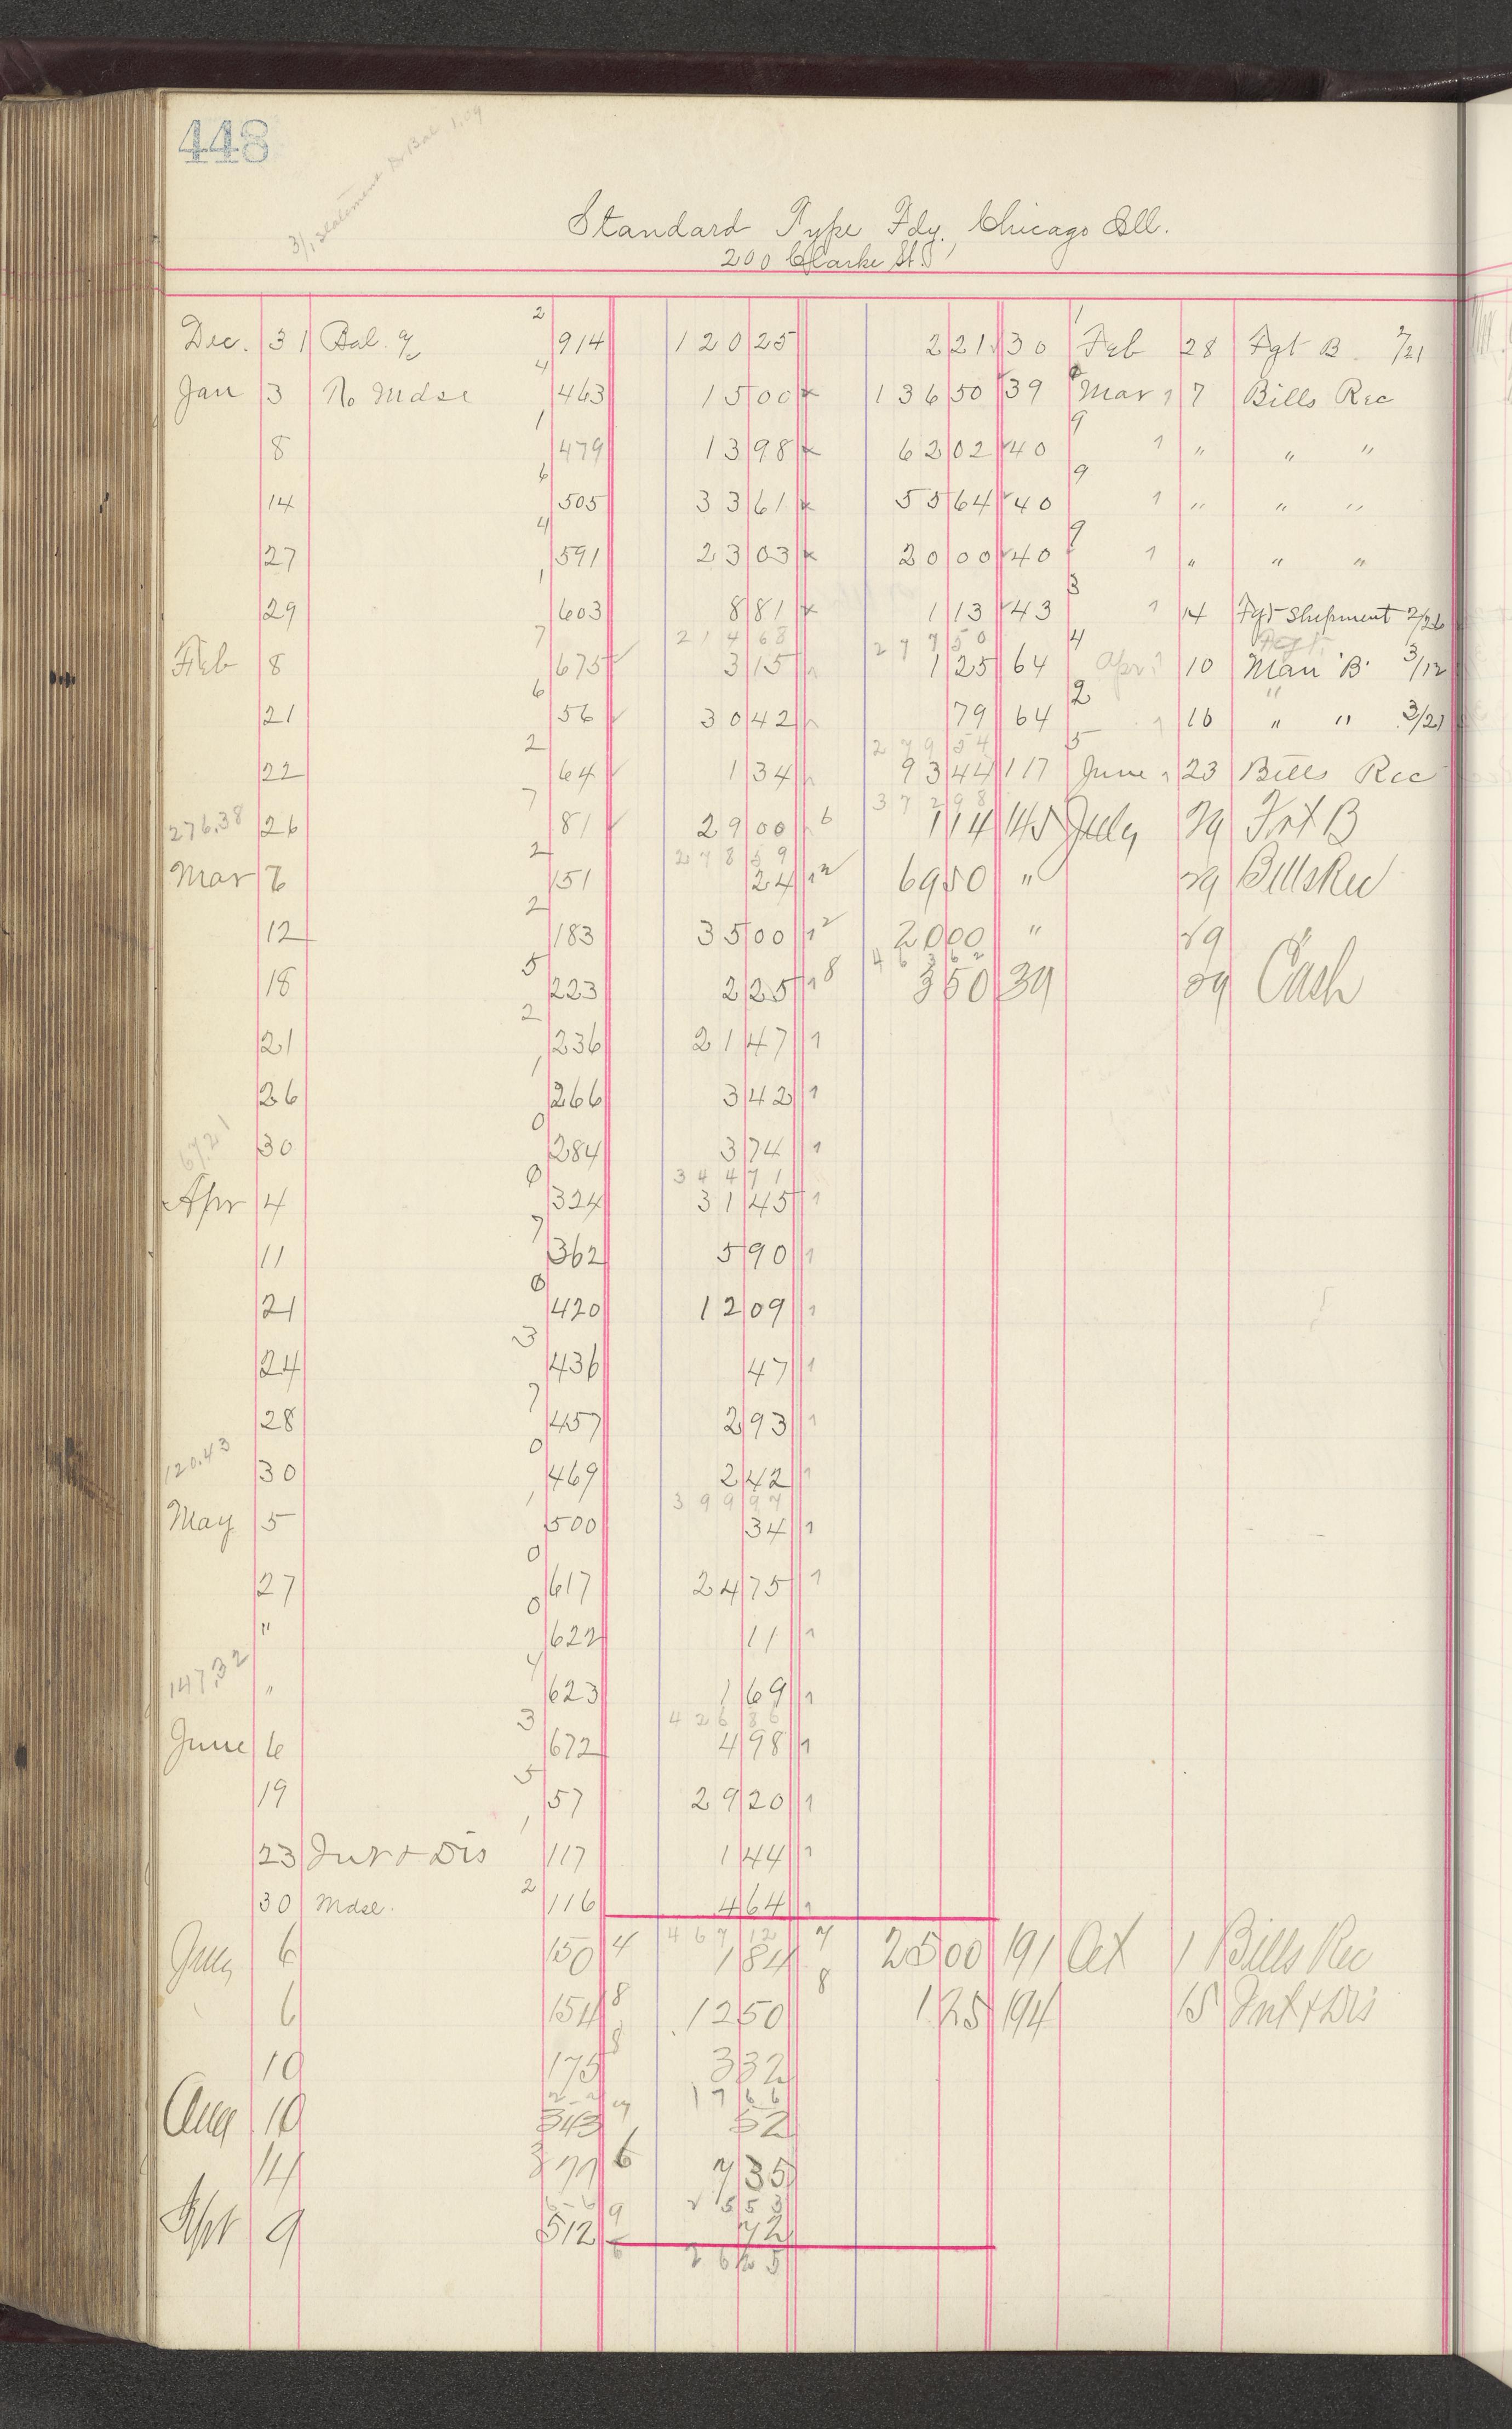 448
3/1 Statement Dr Bal 1.09
Standard Type Fdy. Chicago Ill.
200 Clarke St.
Dec. 31 Bal. a/c 2 914 120 25 2 21 30 1 Feb 28 Fgt B 2/21
Jan 3 To Mdse 4 463 15 00 x 136 50 39 Mar 7 Bills Rec
8 1 479 13 98 x 62 02 40 9 " " "
14 6 505 33 61 x 55 64 40 9 " " "
27 4 591 23 03 x 20 00 40 9 " " "
29 1 603 8 81 x 1 13 43 3 14 Fgt Shipment 2/26
214 68 277 50
Feb 8 7 675 3 15 1 25 64 4 Apr 10 Man "B" 3/12
21 6 56 30 42 79 64 2 16 " " 3/21
279 54
22 2 64 1 34 93 44 117 5 June 23 Bills Rec
372 98
276.38 26 7 81 29 00 6 1 14 145 July 29 Frt B
278 59
Mar 6 2 151 24 2 69 50 " 29 Bills Rec
12 2 183 35 00 2 20 00 " 29 "
463 62
18 5 223 2 25 8 3 50 39 29 Cash
21 2 236 21 47
26 1 266 3 42
67.21 30 0 284 3 74
344 71
Apr 4 0 324 31 45
11 7 362 5 90
21 0 420 12 09
24 3 436 47
28 7 457 2 93
120.43 30 0 469 2 42
399 97
May 5 1 500 34
27 0 617 24 75
" 0 622 11
147.32 " 4 623 1 69
426 86
June 6 3 672 4 98
19 5 57 29 20
23 Int & Dis 1 117 1 44
30 Mdse. 2 116 4 64
467 12
July 6 150 4 1 84 7 25 00 191 Oct 1 Bills Rec
6 154 8 12 50 8 1 25 194 15 Int & Dis
10 175 8 3 32
17 66
Aug 10 343 7 52
14 377 6 7 35
25 53
Sept 9 512 9 72
26 25